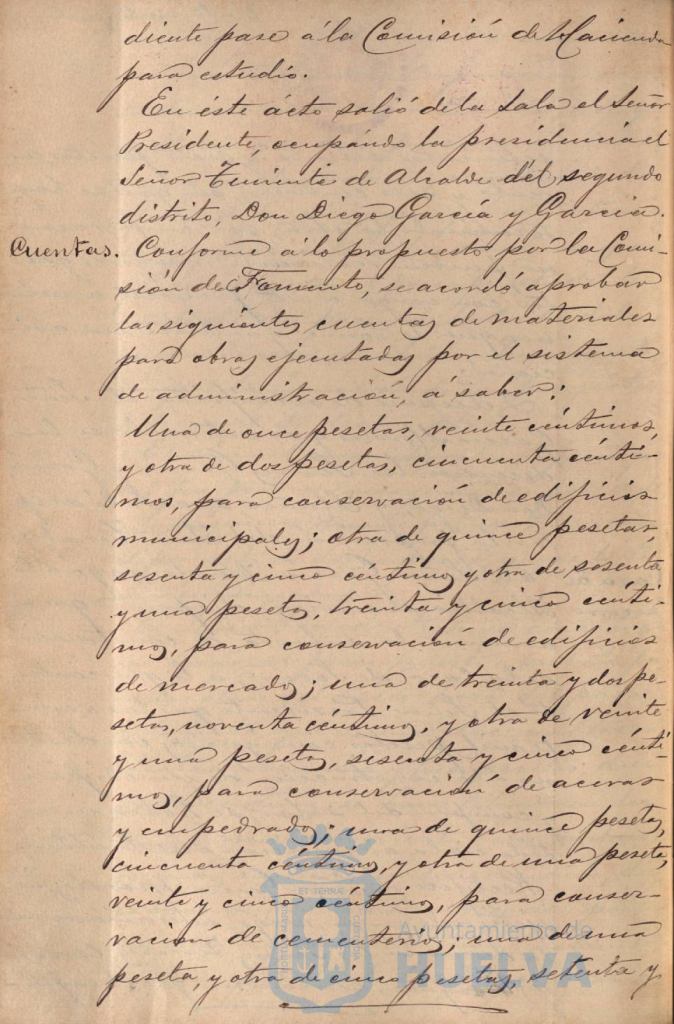 diente pase á la Comisión de Hacienda
para estudio.
En éste ácto salió de la Sala el Señor
Presidente, ocupándo la presidencia el
Señor Teniente de Alcalde del segundo
distrito, Don Diego García y García.
Cuentas. Conforme á lo propuesto por la Comi-
sión de Fomento, se acordó aprobar
las siguientes cuentas de materiales
para obras ejecutadas por el sistema
de administración, á saber:
Una de once pesetas, veinte céntimos,
y otra de dos pesetas, cincuenta cénti-
mos, para conservación de edificios
municipales; otra de quince pesetas,
sesenta y cinco céntimos y otra de sesenta
y una pesetas, treinta y cinco cénti-
mos, para conservación de edificios
de mercados; una de treinta y dos pe-
setas, noventa céntimos, y otra de veinte
y una pesetas, sesenta y cinco cénti-
mos, para conservación de aceras
y empedrados; una de quince pesetas,
cincuenta céntimos, y otra de una peseta,
veinte y cinco céntimos, para conser-
vación de cementerios; una de una
peseta, y otra de cinco pesetas, setenta y
Ayuntamiento de
HUELVA